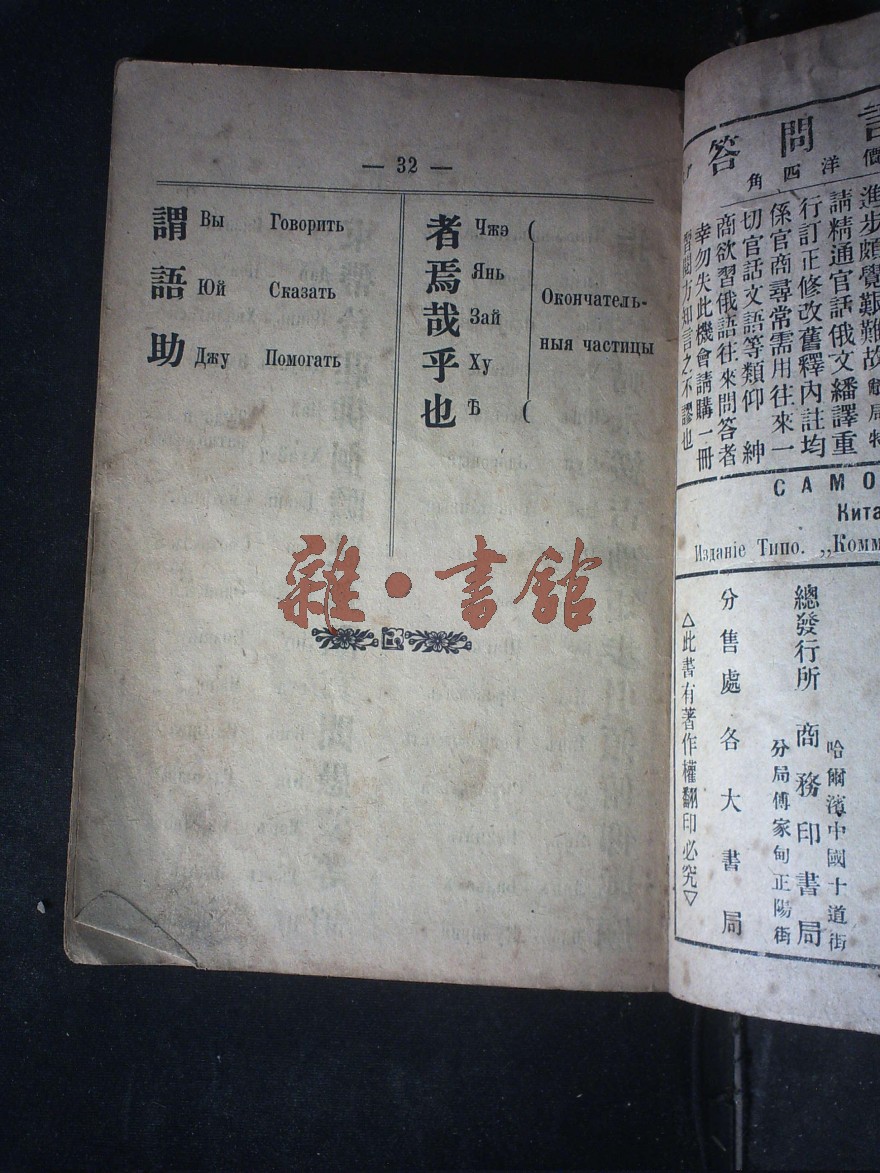 — 32 —
謂 Вы Говорить
語 Юй Сказать
助 Джу Помогать
者 Чжэ (
焉 Янь
哉 Зай
乎 Ху
也 Ѣ (
Окончатель-
ныя частицы
雜·書館
問答
價洋四角
進步頗覺艱難故敝局特
請精通官話俄文繙譯重
行訂正修改舊釋內註均
係官商尋常需用往來一
切官話文語等類仰 紳
商欲習俄語往來問答者
幸勿失此機會請購一冊
習閱方知言之不謬也
САМО
Кита
Изданіе Типо. „Комм
哈爾濱中國十道街
總發行所 商務印書局
分局傅家甸正陽街
分售處各大書局
△此書有著作權翻印必究▽